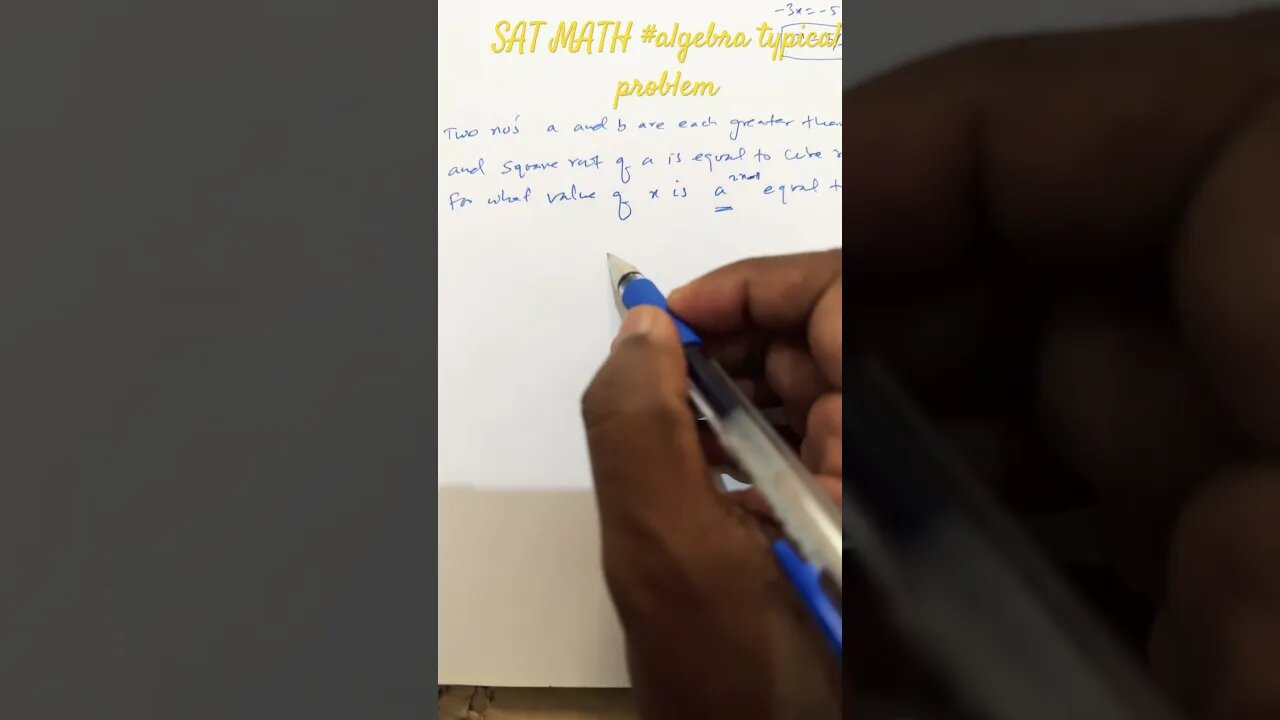 -3x = -5
SAT MATH #algebra typical
problem
Two no's a and b are each greater than
and square root of a is equal to cube
For what value of x is a equal